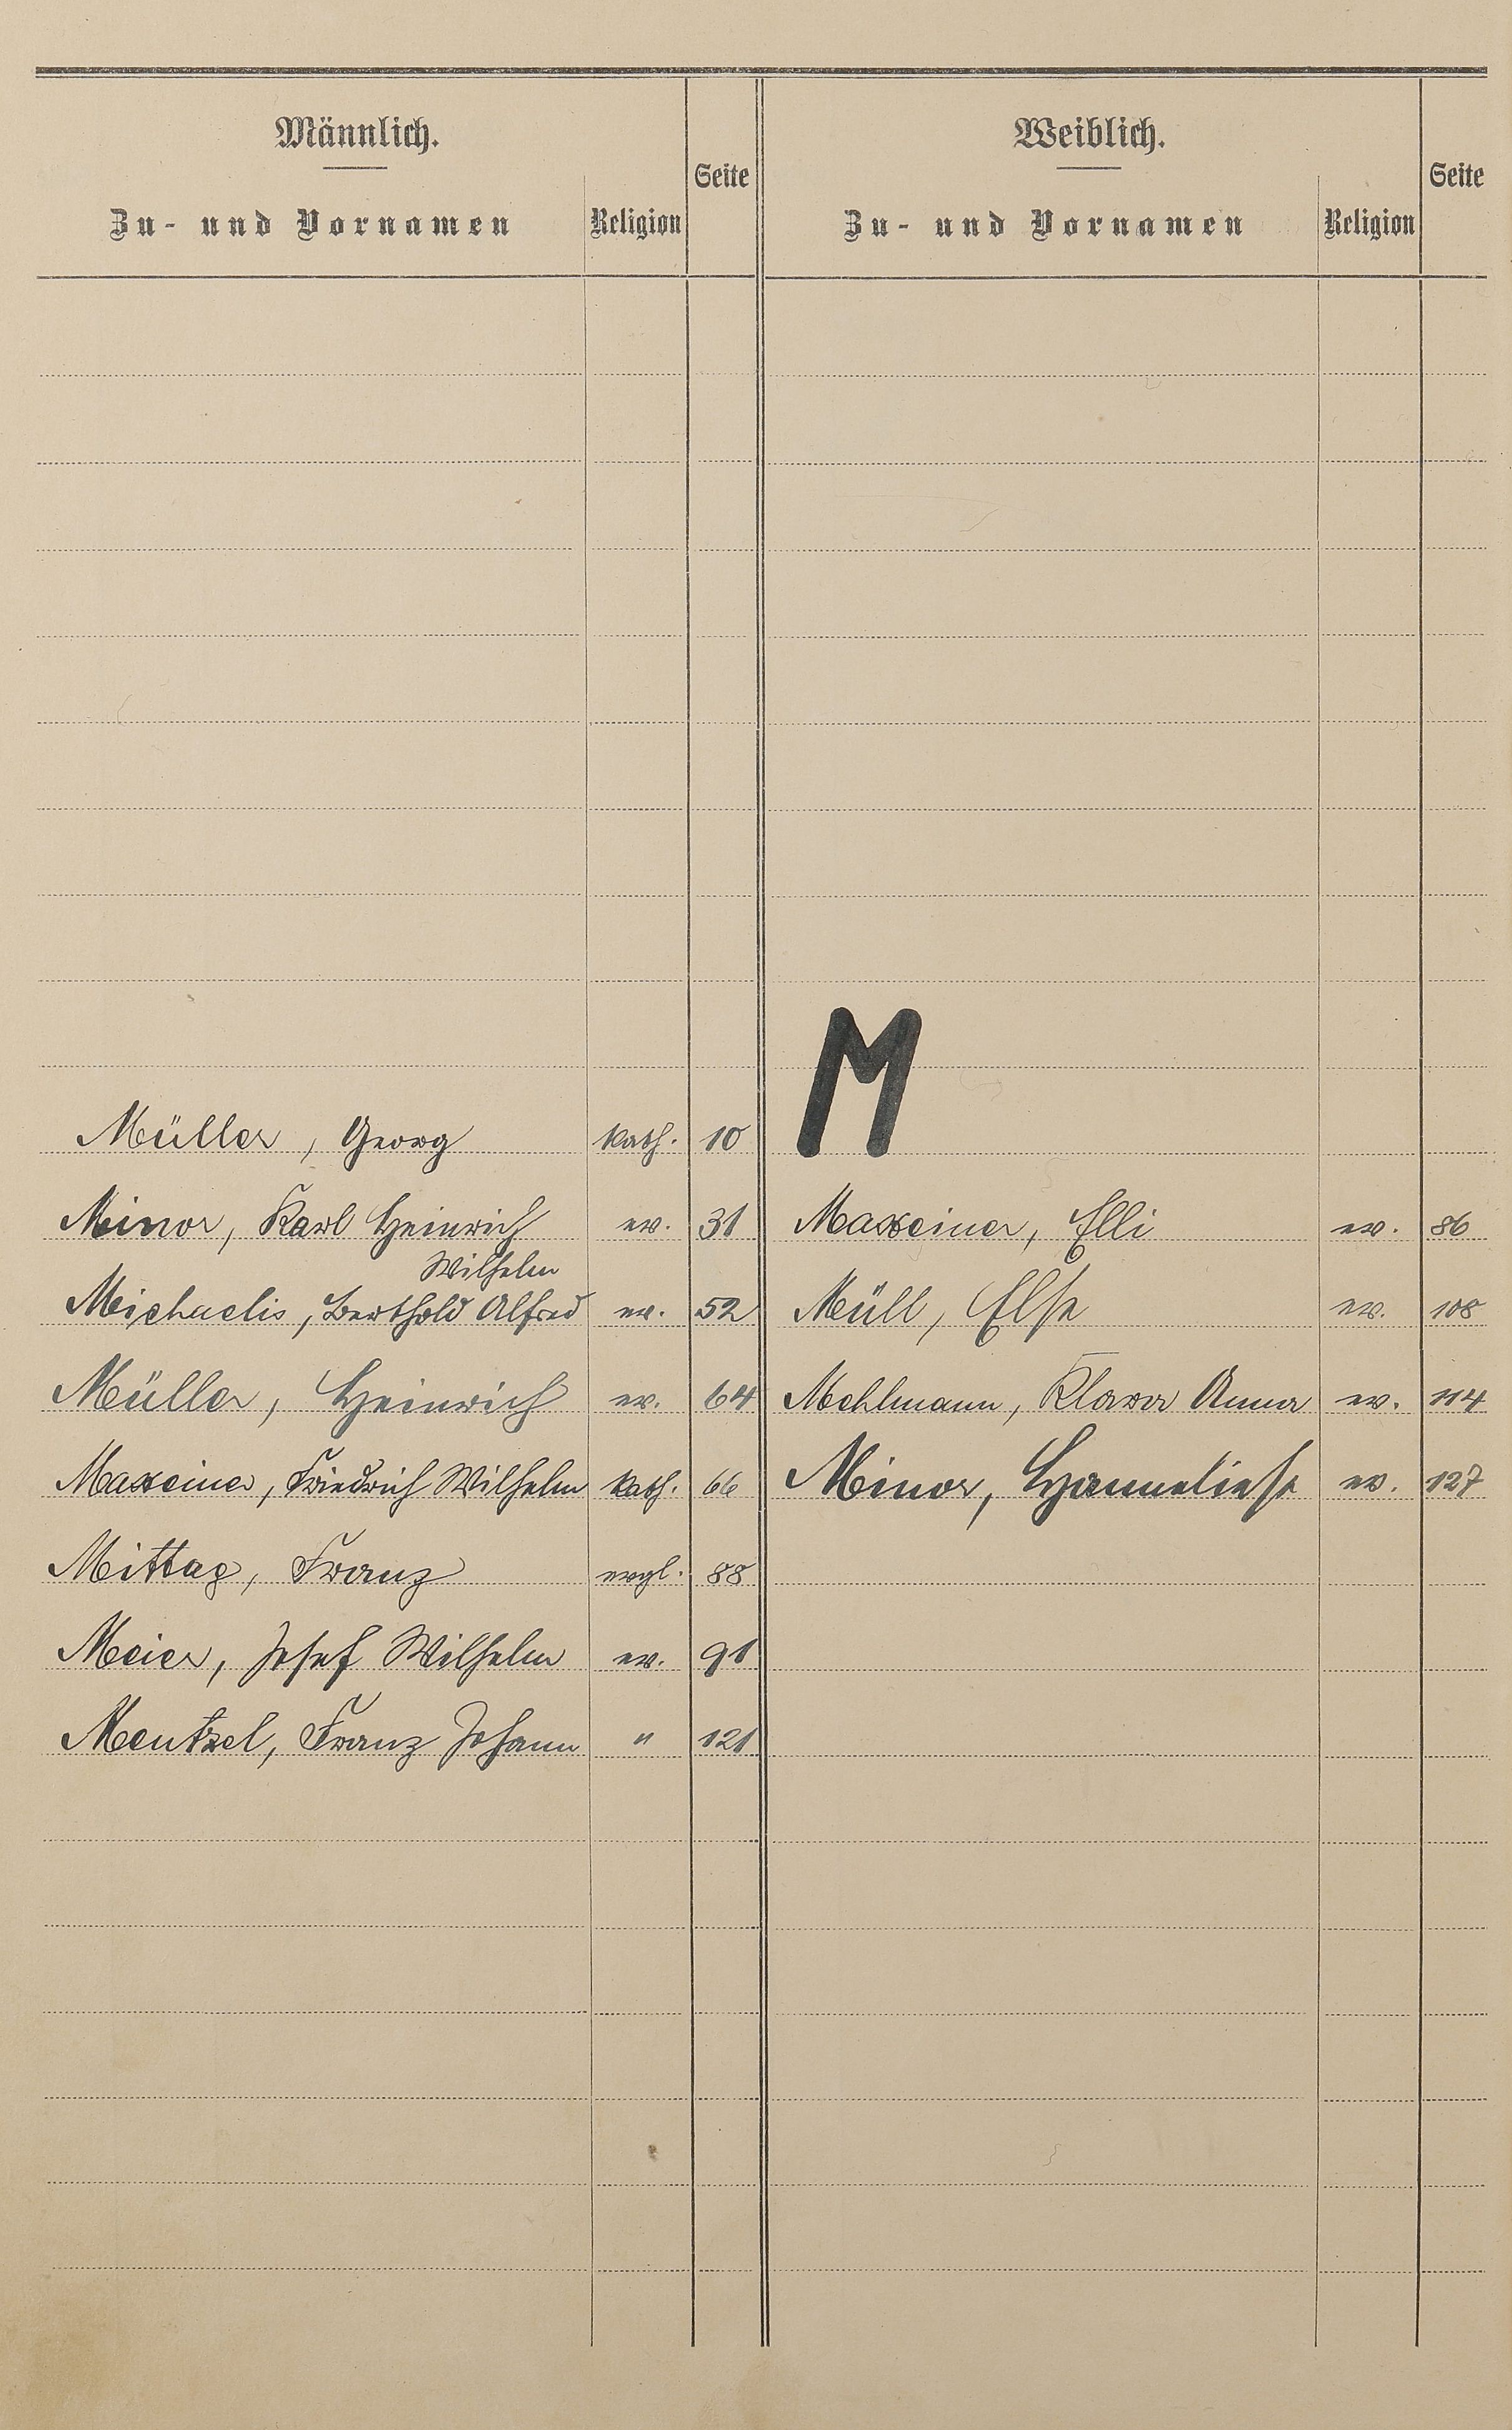 Männlich.
Zu- und Vornamen Religion Seite
Weiblich.
Zu- und Vornamen Religion Seite
M
Müller, Georg kath. 10
Minor, Karl Heinrich ev. 31
Wilhelm
Michaelis, Berthold Alfred ev. 52
Müller, Heinrich ev. 64
Maxeiner, Friedrich Wilhelm kath. 66
Mittag, Franz evgl. 88
Meier, Josef Wilhelm ev. 91
Mentzel, Franz Johann " 121
Maxeiner, Elli ev. 86
Müll, Else ev. 108
Mehlmann, Klara Anna ev. 114
Minor, Hanneliese ev. 127